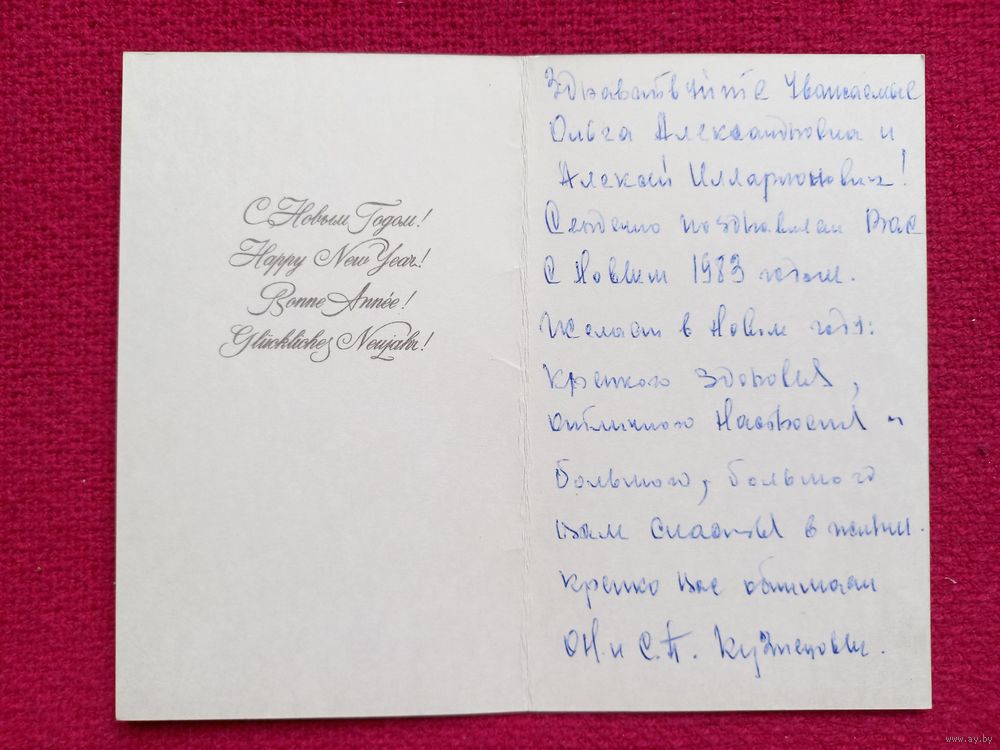 С Новым Годом!
Happy New Year!
Bonne Année!
Glückliches Neujahr!
Здравствуйте Уважаемые
Ольга Александровна и
Алексей Илларионович!
Сердечно поздравляем Вас
С Новым 1983 годом.
Желаем в Новом году:
Крепкого здоровья,
отличного Настроения и
большого, большого
Вам счастья в жизни.
Крепко Вас обнимаем
О.Н. и С.П. Кузнецовы.
www.ay.by